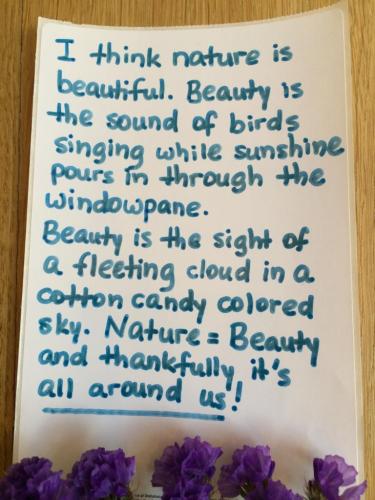 I think nature is
beautiful. Beauty is
the sound of birds
singing while sunshine
pours in through the
windowpane.
Beauty is the sight of
a fleeting cloud in a
cotton candy colored
sky. Nature = Beauty
and thankfully it's
all around us!